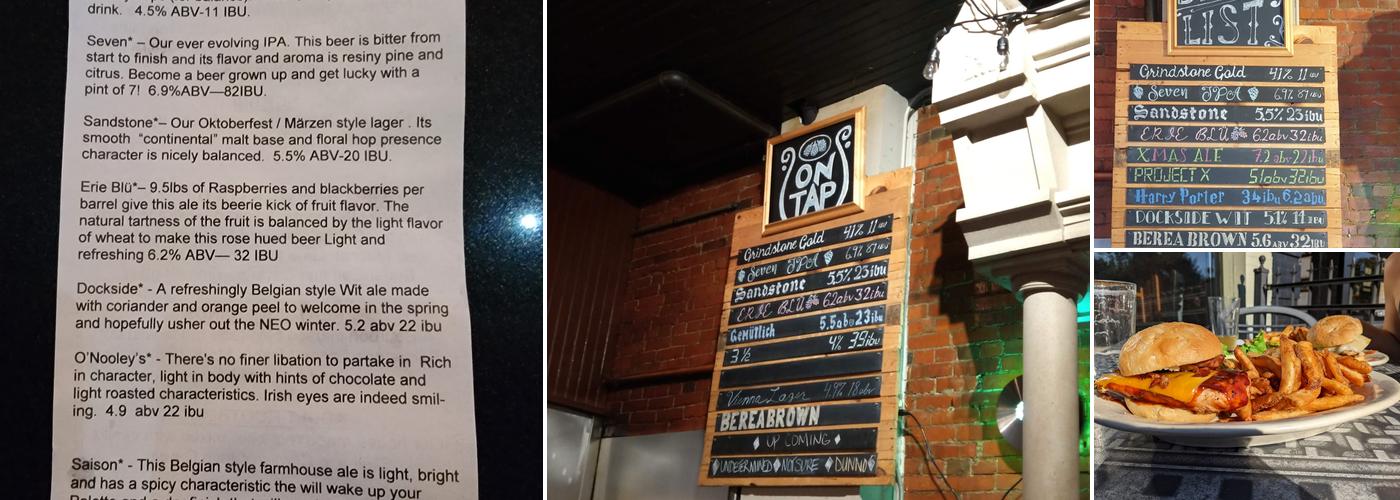 drink. 4.5% ABV-11 IBU.
Seven* – Our ever evolving IPA. This beer is bitter from
start to finish and its flavor and aroma is resiny pine and
citrus. Become a beer grown up and get lucky with a
pint of 7! 6.9%ABV—82IBU.
Sandstone*– Our Oktoberfest / Märzen style lager . Its
smooth “continental” malt base and floral hop presence
character is nicely balanced. 5.5% ABV-20 IBU.
Erie Blü*– 9.5lbs of Raspberries and blackberries per
barrel give this ale its beerie kick of fruit flavor. The
natural tartness of the fruit is balanced by the light flavor
of wheat to make this rose hued beer Light and
refreshing 6.2% ABV— 32 IBU
Dockside* - A refreshingly Belgian style Wit ale made
with coriander and orange peel to welcome in the spring
and hopefully usher out the NEO winter. 5.2 abv 22 ibu
O’Nooley’s* - There's no finer libation to partake in Rich
in character, light in body with hints of chocolate and
light roasted characteristics. Irish eyes are indeed smil-
ing. 4.9 abv 22 ibu
Saison* - This Belgian style farmhouse ale is light, bright
and has a spicy characteristic the will wake up your
ON
TAP
Grindstone Gold 4.1% 11 IBU
Seven IPA 6.9% 87 IBU
Sandstone 5.5% 23 ibu
ERIE BLÜ 6.2abv 32ibu
Gemütlich 5.5abv 23ibu
3 ½ 4% 39ibu
Vienna Lager 4.9% 18abv
BEREA BROWN
UP COMING
UNDETERMINED NOT SURE DUNNO
LIST
Grindstone Gold 4.1% 11 IBU
Seven IPA 6.9% 87 IBU
Sandstone 5.5% 23 ibu
ERIE BLÜ 6.2abv 32ibu
XMAS ALE 7.2 abv 22ibu
PROJECT X 5.1abv 32ibu
Harry Porter 34ibu 6.2abv
DOCKSIDE WIT 5.1% 14 IBU
BEREA BROWN 5.6 ABV 32 IBU